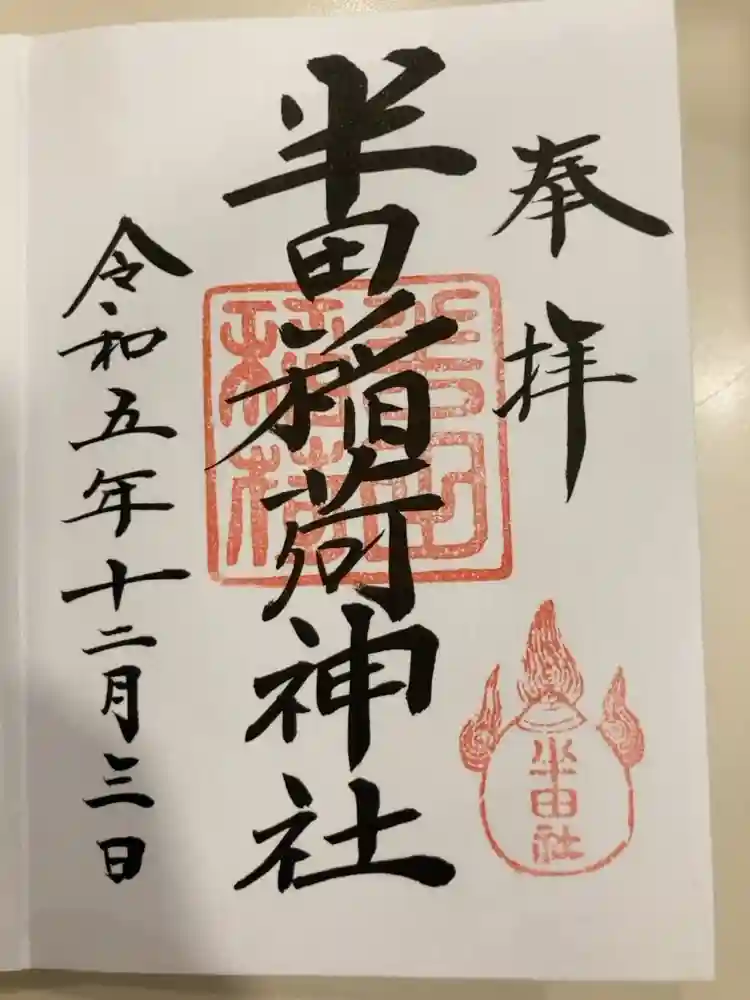 奉拝
半田稲荷神社
令和五年十二月三日
半田稲荷
半田社